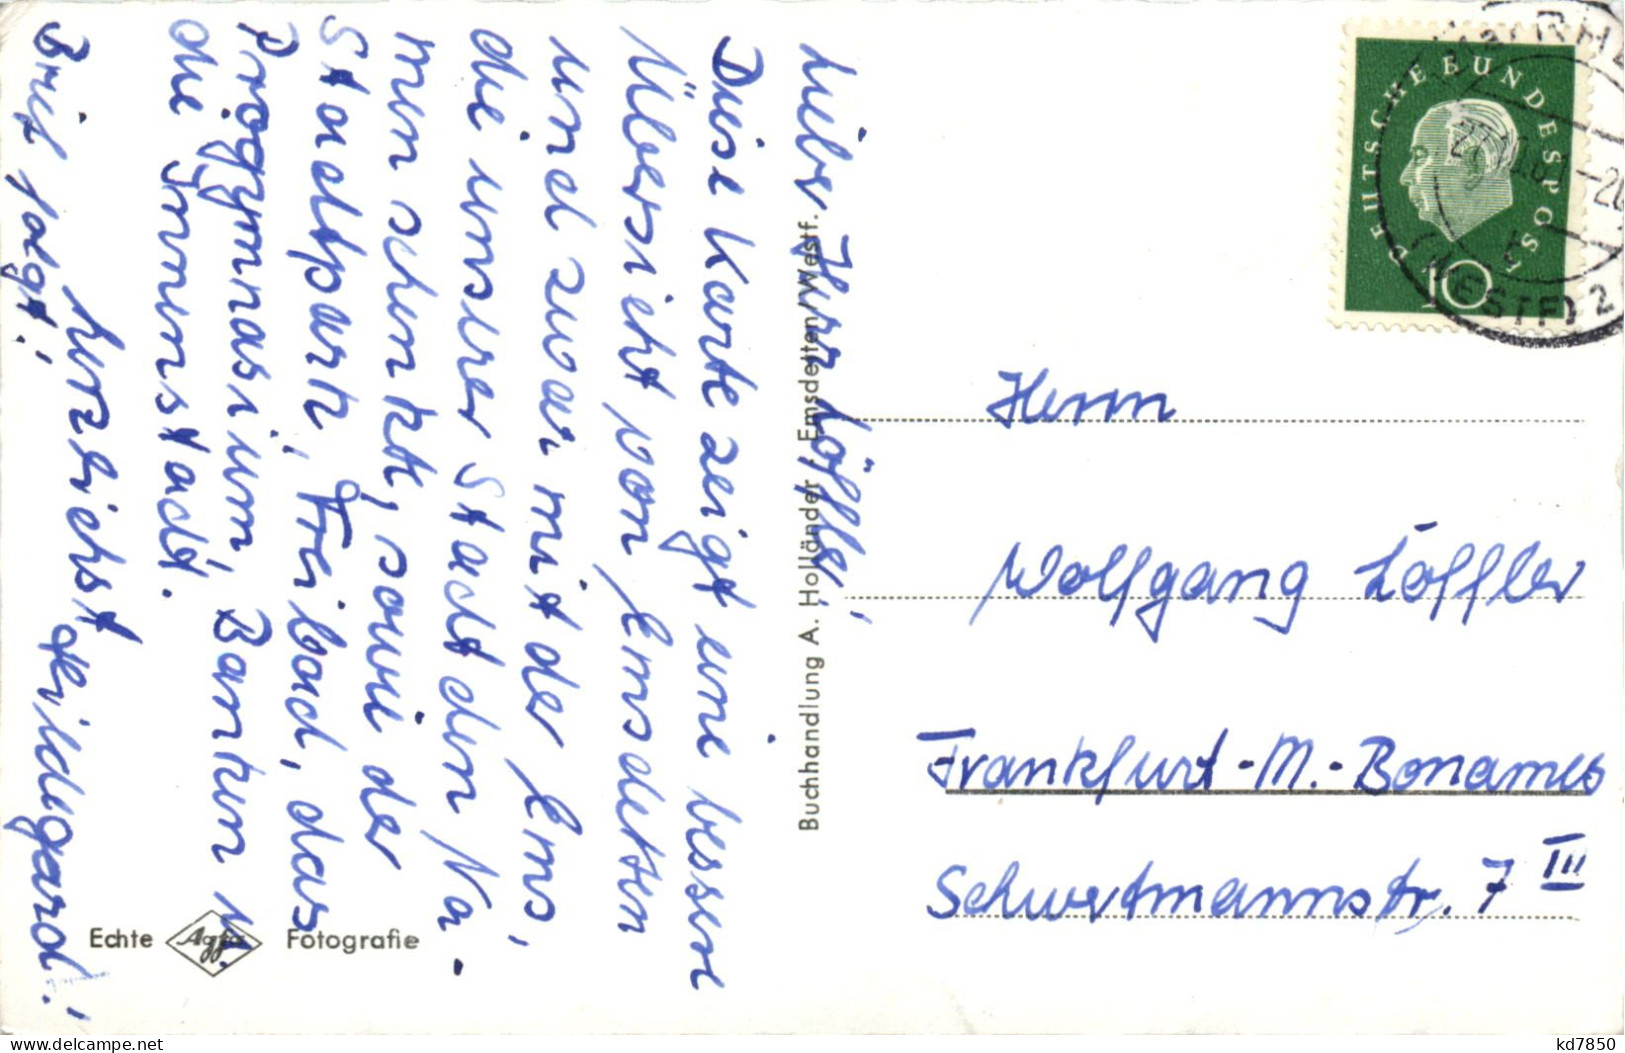 Lieber Herr Löffler,
Diese Karte zeigt eine bessere
Übersicht von Emsdetten
und zwar mit der Ems,
die unserer Stadt den Na-
men schenkt, sowie der
Stadtpark, Freibad, das
Progymnasium, Banken u.
die Innenstadt.
Brief folgt!
herzlichst Hildegard!
Echte Agfa Fotografie
Buchhandlung A. Holländer, Emsdetten/Westf.
DEUTSCHE BUNDESPOST
10
(WESTF) 2
Herrn
Wolfgang Löffler
Frankfurt-M.-Bonames
Schwertmannstr. 7 III
www.delcampe.net
kd7850